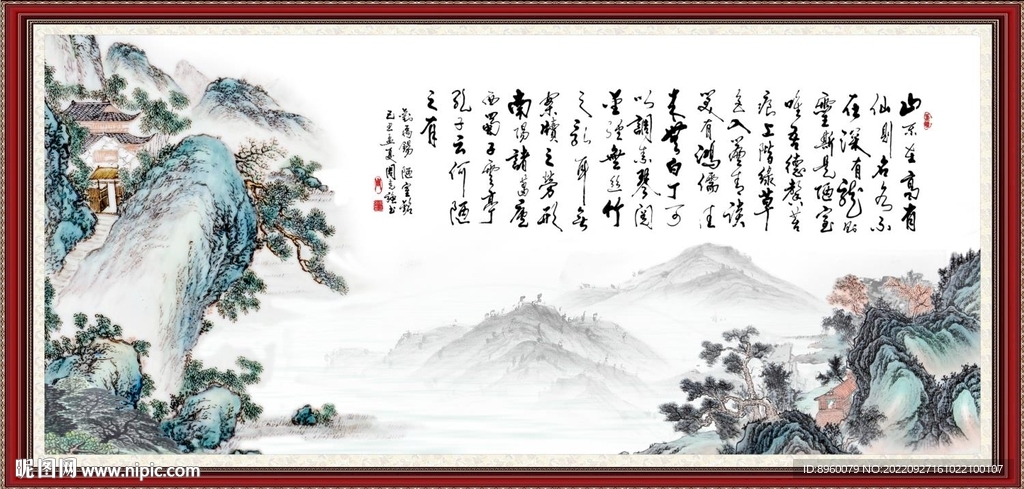 山不在高有
仙則名水不
在深有龍則
靈斯是陋室
唯吾德馨苔
痕上階綠草
色入簾青談
笑有鴻儒往
来無白丁可
以調素琴閱
金經無絲竹
之亂耳無
案牘之勞形
南陽諸葛廬
西蜀子雲亭
孔子云何陋
之有
劉禹錫 陋室銘
己丑孟夏周
昵图网 www.nipic.com
ID:8960079 NO:20220927161022100107